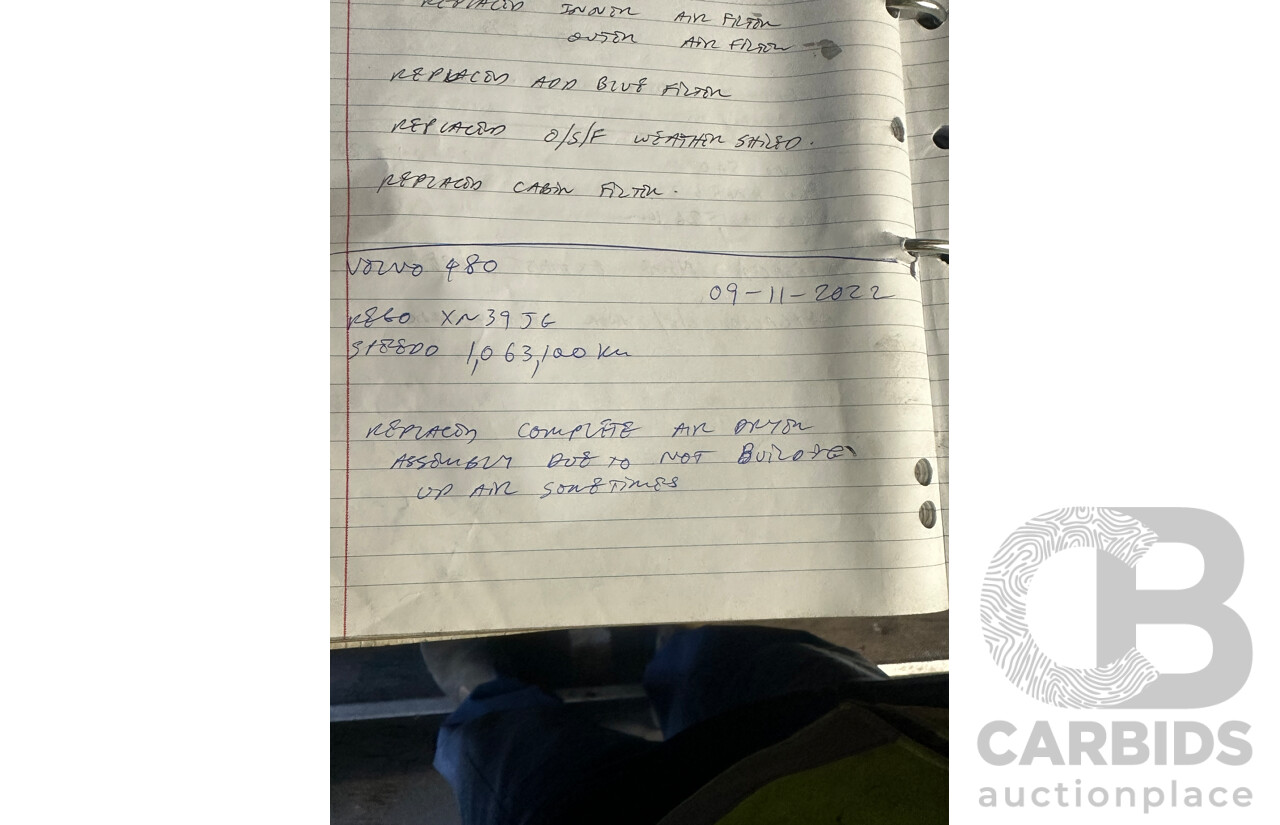 REPLACED INNER AIR FILTER
OUTER AIR FILTER
REPLACED ADD BLUE FILTER
REPLACED O/S/F WEATHER SHIELD.
REPLACED CABIN FILTER.
VOLVO 480
09-11-2022
REGO XN39JG
SPEEDO 1,063,100 km
REPLACED COMPLETE AIR DRYER
ASSEMBLY DUE TO NOT BUILDING
UP AIR SOMETIMES
CARBIDS
auctionplace